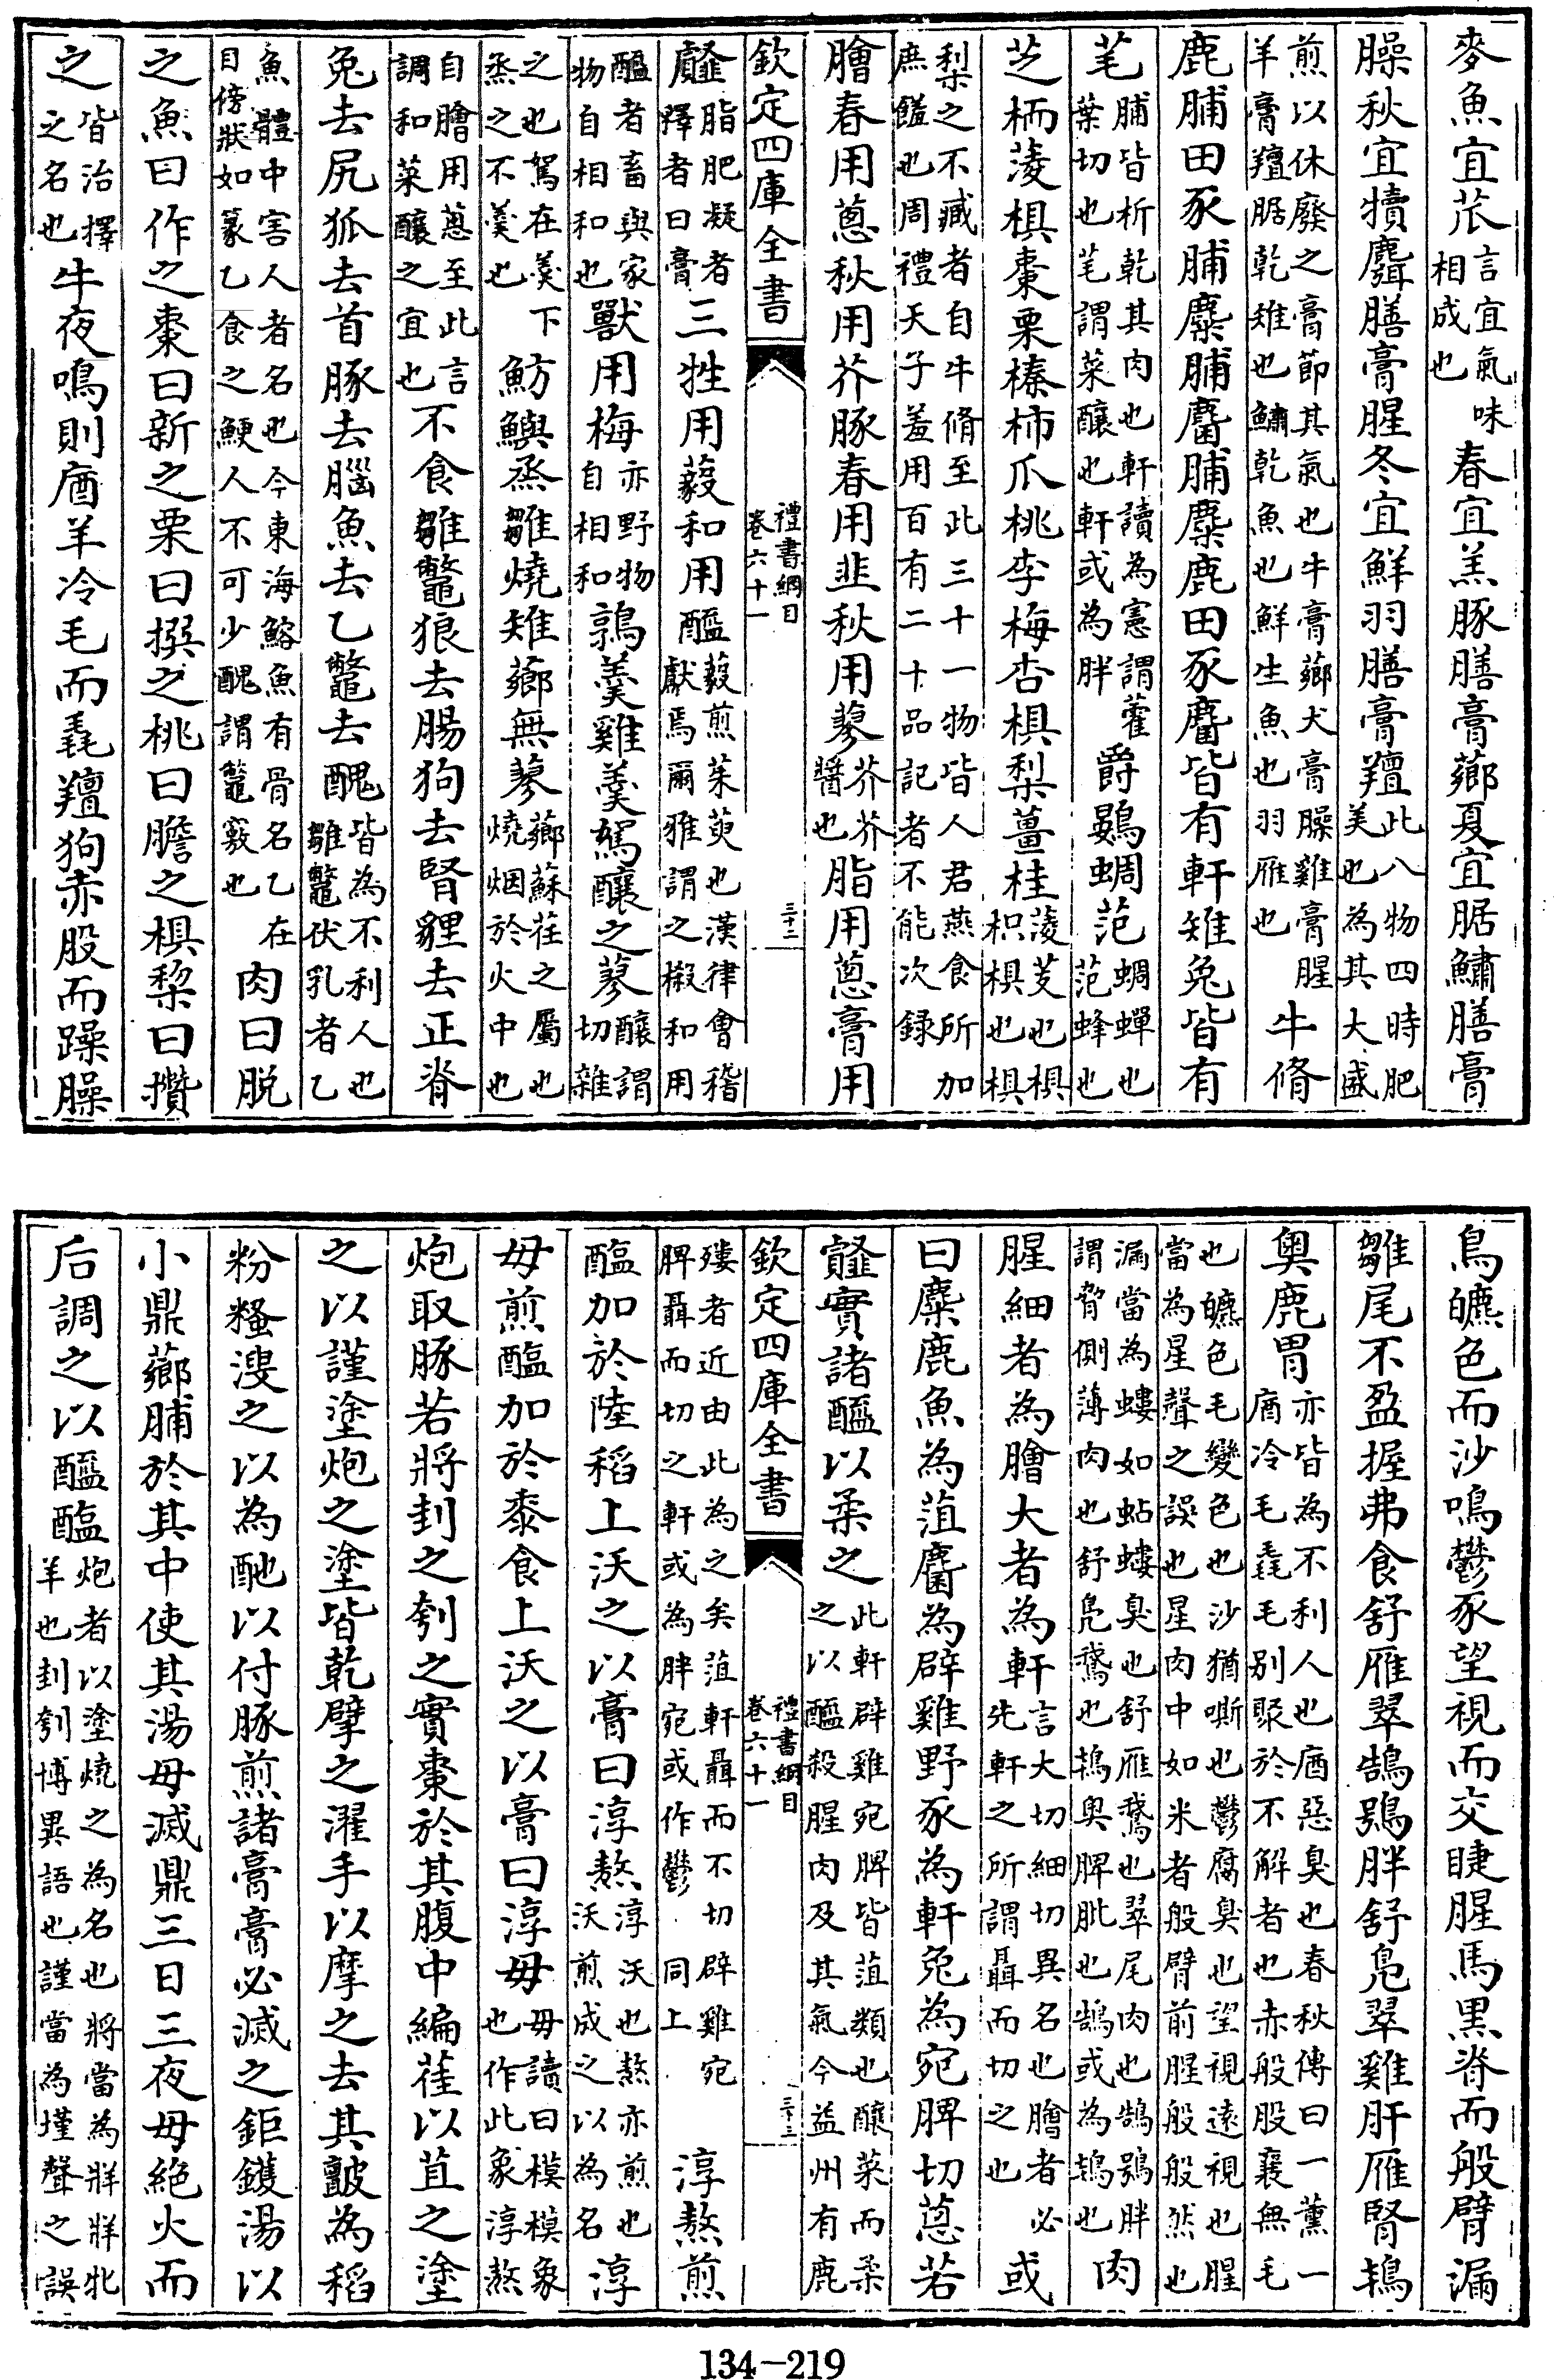 麥魚宜苽言宜氣味相成也春宜羔豚膳膏薌夏宜腒鱐膳膏
臊秋宜犢麛膳膏腥冬宜鮮羽膳膏羶此八物四時肥美也為其大盛
煎以休廢之膏節其氣也牛膏薌犬膏臊雞膏腥羊膏羶腒乾雉也鱐乾魚也鮮生魚也羽雁也牛脩
鹿脯田豕脯麋脯麕脯麋鹿田豕麕皆有軒雉兔皆有
芼脯皆析乾其肉也軒讀為憲謂藿葉切也芼謂菜釀也軒或為胖爵鷃蜩范蜩蟬也范蜂也
芝栭蔆椇棗栗榛柿瓜桃李梅杏椇梨薑桂蔆芰也椇枳椇也椇
梨之不臧者自牛脩至此三十一物皆人君燕食所加庶饈也周禮天子羞用百有二十品記者不能次録
膾春用蔥秋用芥豚春用韭秋用蓼芥芥醬也脂用蔥膏用
欽定四庫全書 禮書綱目卷六十一 三十二
薤脂肥凝者釋者曰膏三牲用藙和用醯藙煎茱萸也漢律會稽獻焉爾雅謂之樧和用
醯者畜與家物自相和也獸用梅亦野物自相和鶉羹雞羹鴽釀之蓼釀謂切雜
之也鴽在羹下烝之不羹也魴鱮烝雛燒雉薌無蓼薌蘇荏之屬也燒烟於火中也
自膾用蔥至此言調和菜釀之宜也不食雛鼈狼去腸狗去腎貍去正脊
兔去尻狐去首豚去腦魚去乙鼈去醜皆為不利人也雛鼈伏乳者乙
魚體中害人者名也今東海鰫魚有骨名乙在目傍狀如篆乙食之鯁人不可少醜謂鼈竅也肉曰脱
之魚曰作之棗曰新之栗曰撰之桃曰膽之椇棃曰攢
之皆治擇之名也牛夜鳴則庮羊冷毛而毳羶狗赤股而躁臊
鳥皫色而沙鳴鬱豕望視而交睫腥馬黑脊而般臂漏
雛尾不盈握弗食舒雁翠鵠鴞胖舒鳧翠雞肝雁腎鴇
奥鹿胃亦皆為不利人也庮惡臭也春秋傳曰一薰一庮冷毛毛毳毛別聚於不解者也赤般股襄無毛
也皫色毛變色也沙猶嘶也鬱腐臭也望視遠視也腥當為星聲之誤也星肉中如米者般臂前脛般般然也
漏當為螻如蛄螻臭也舒雁鵞也翠尾肉也鵠鴞胖謂脅側薄肉也舒鳧鶩也鴇奥脾肶也鵠或為鴇也肉
腥細者為膾大者為軒言大切細切異名也膾者必先軒之所謂聶而切之也或
曰麋鹿魚為菹麕為辟雞野豕為軒兔為宛脾切蔥若
薤實諸醯以柔之此軒辟雞宛脾皆菹類也釀菜而柔之以醯殺腥肉及其氣今益州有鹿
欽定四庫全書 禮書綱目卷六十一 三十三
殘者近由此為之矣菹軒聶而不切辟雞宛脾聶而切之軒或為胖宛或作鬱同上淳熬煎
醢加於陸稻上沃之以膏曰淳熬淳沃也熬亦煎也沃煎成之以為名淳
毋煎醢加於黍食上沃之以膏曰淳毋毋讀曰模模象也作此象淳熬
炮取豚若將刲之刳之實棗於其腹中編萑以苴之塗
之以謹塗炮之塗皆乾擘之濯手以摩之去其皽為稻
粉糔溲之以為酏以付豚煎諸膏膏必滅之鉅鑊湯以
小鼎薌脯於其中使其湯毋滅鼎三日三夜毋絶火而
后調之以醯醢炮者以塗燒之為名也將當為牂牂牝羊也刲刳博異語也謹當為墐聲之誤
134-219